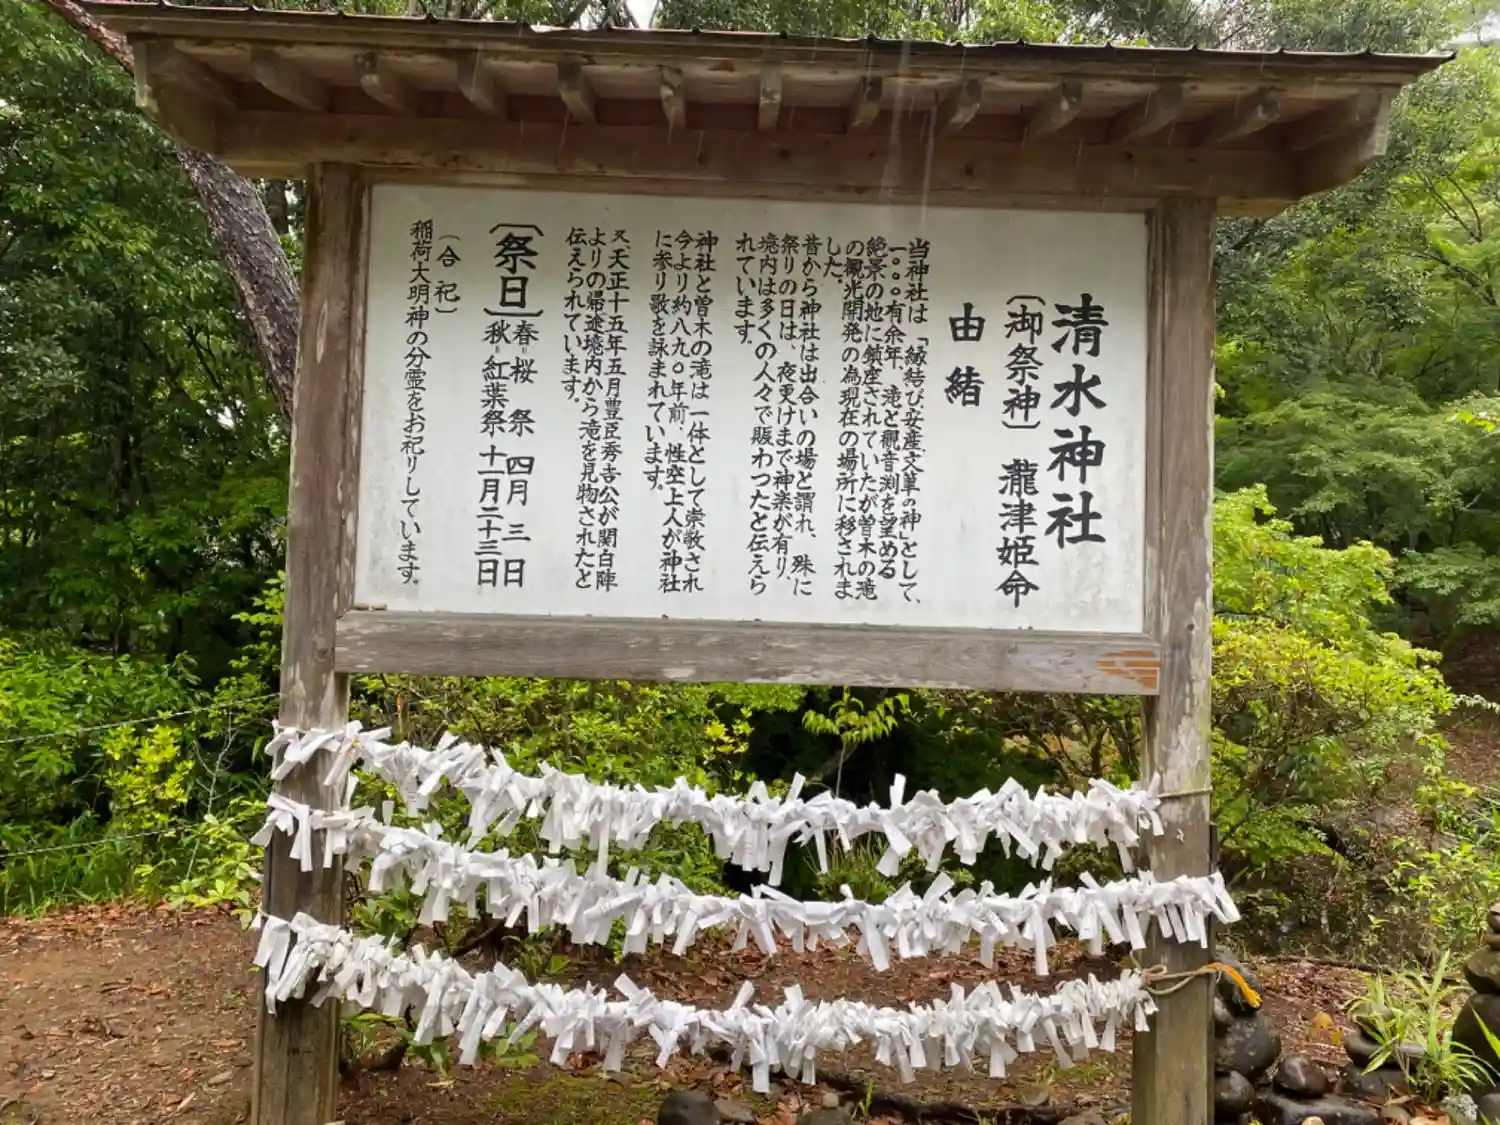 清水神社
〔御祭神〕 瀧津姫命
由 結
当神社は「縁結び安産文筆の神」として、
一〇〇〇有余年、滝と観音渕を望める
絶景の地に鎮座されていたが曽木の滝
の観光開発の為現在の場所に移されま
した。
昔から神社は出合いの場と謂れ、殊に
祭りの日は、夜更けまで神楽が有り、
境内は多くの人々で賑わつたと伝えら
れています。
神社と曽木の滝は一体として崇敬され
今より約八九〇年前、性空上人が神社
に参り歌を詠まれています。
又、天正十五年五月豊臣秀吉公が関白陣
よりの帰途境内から滝を見物されたと
伝えられています。
〔祭日〕春=桜 祭 四月 三 日
秋=紅葉祭 十一月二十三日
〔合 祀〕
稲荷大明神の分霊をお祀りしています。